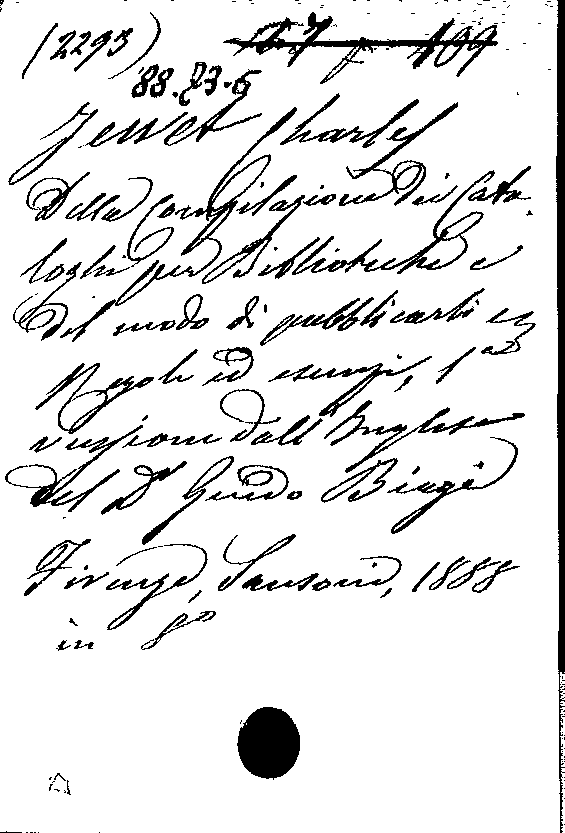 (2293)
88.J3.6
Jewet Charles
Della compilazione dei Cata-
loghi per Biblioteche e
del modo di pubblicarli
Regole ed esempi, 1a
versione dall'Inglese
del Dr Guido Biagi
Firenze, Sansoni, 1888
in 8°